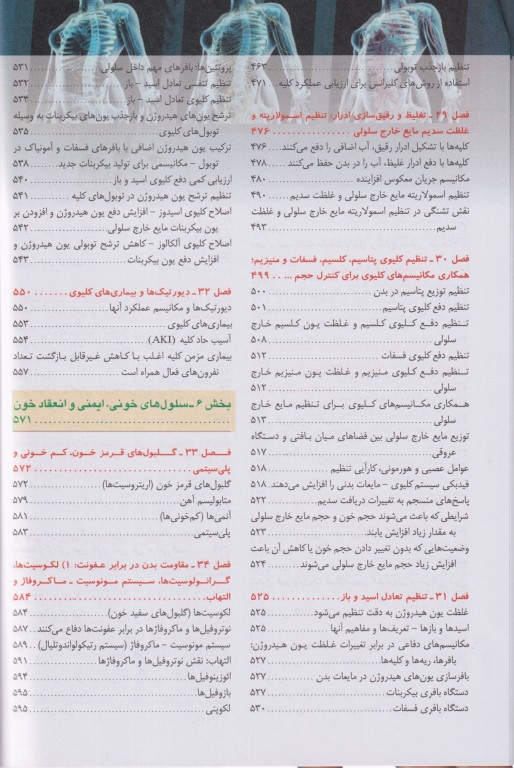 تنظیم بازجذب توبولی ۴۶۳
استفاده از روش‌های کلیرانس برای ارزیابی عملکرد کلیه ... ۴۷۱
فصل ۲۹ ـ تغلیظ و رقیق‌سازی ادرار، تنظیم اسمولاریته و
غلظت سدیم مایع خارج سلولی ........ ۴۷۶
کلیه‌ها با تشکیل ادرار رقیق، آب اضافی را دفع می‌کنند. ۴۷۶
کلیه‌ها با دفع ادرار غلیظ، آب را در بدن حفظ می‌کنند ۴۷۸
مکانیسم جریان معکوس افزاینده ........ ۴۸۰
تنظیم اسمولاریته مایع خارج سلولی و غلظت سدیم ..... ۴۹۰
نقش تشنگی در تنظیم اسمولاریته مایع خارج سلولی و غلظت
سدیم ........ ۴۹۳
فصل ۳۰ ـ تنظیم کلیوی پتاسیم، کلسیم، فسفات و منیزیم؛
همکاری مکانیسم‌های کلیوی برای کنترل حجم ... ۴۹۹
تنظیم توزیع پتاسیم در بدن ........ ۵۰۰
تنظیم دفع کلیوی پتاسیم ........ ۵۰۱
تنظیم دفع کلیوی کلسیم و غلظت یون کلسیم خارج
سلولی ........ ۵۰۸
تنظیم دفع کلیوی فسفات ........ ۵۱۲
تنظیم دفع کلیوی منیزیم و غلظت یون منیزیم خارج
سلولی ........ ۵۱۲
همکاری مکانیسم‌های کلیوی برای تنظیم مایع خارج
سلولی ........ ۵۱۳
توزیع مایع خارج سلولی بین فضاهای میان بافتی و دستگاه
عروقی ........ ۵۱۷
عوامل عصبی و هورمونی، کارآیی تنظیم ........ ۵۱۸
فیدبکی سیستم کلیوی – مایعات بدنی را افزایش می‌دهند. ۵۱۸
پاسخ‌های منسجم به تغییرات دریافت سدیم ........ ۵۲۲
شرایطی که باعث می‌شوند حجم خون و حجم مایع خارج سلولی
به مقدار زیاد افزایش یابند ........ ۵۲۳
وضعیت‌هایی که بدون تغییر دادن حجم خون یا کاهش آن باعث
افزایش زیاد حجم مایع خارج سلولی می‌شوند ........ ۵۲۴
فصل ۳۱ ـ تنظیم تعادل اسید و باز ........ ۵۲۵
غلظت یون هیدروژن به دقت تنظیم می‌شود ........ ۵۲۵
اسیدها و بازها – تعریف‌ها و مفاهیم آنها ........ ۵۲۵
مکانیسم‌های دفاعی در برابر تغییرات غلظت یون هیدروژن:
بافرها، ریه‌ها و کلیه‌ها ........ ۵۲۷
بافرسازی یون‌های هیدروژن در مایعات بدن ........ ۵۲۷
دستگاه بافری بیکربنات ........ ۵۲۷
دستگاه بافری فسفات ........ ۵۳۰
پروتئین‌ها: بافرهای مهم داخل سلولی ۵۳۱
تنظیم تنفسی تعادل اسید – باز ۵۳۲
تنظیم کلیوی تعادل اسید – باز ۵۳۴
ترشح یون‌های هیدروژن و بازجذب یون‌های بیکربنات به وسیله
توبول‌های کلیوی ........ ۵۳۵
ترکیب یون هیدروژن اضافی با بافرهای فسفات و آمونیاک در
توبول – مکانیسمی برای تولید بیکربنات جدید ........ ۵۳۸
ارزیابی کمی دفع کلیوی اسید و باز ........ ۵۴۰
تنظیم ترشح یون هیدروژن در توبول‌های کلیه ........ ۵۴۱
اصلاح کلیوی اسیدوز – افزایش دفع یون هیدروژن و افزودن بر
یون بیکربنات مایع خارج سلولی ........ ۵۴۲
اصلاح کلیوی آلکالوز – کاهش ترشح توبولی یون هیدروژن و
افزایش دفع یون بیکربنات ........ ۵۴۳
فصل ۳۲ ـ دیورتیک‌ها و بیماری‌های کلیوی ........ ۵۵۰
دیورتیک‌ها و مکانیسم عملکرد آنها ........ ۵۵۰
بیماری‌های کلیوی ........ ۵۵۳
آسیب حاد کلیه (AKI) ........ ۵۵۴
بیماری مزمن کلیه اغلب با کاهش غیرقابل بازگشت تعداد
نفرون‌های فعال همراه است ........ ۵۵۷
بخش ۶ ـ سلول‌های خونی، ایمنی و انعقاد خون
۵۷۱ ........
فصل ۳۳ ـ گلبول‌های قرمز خون، کم خونی و
پلی‌سیتمی ........ ۵۷۲
گلبول‌های قرمز خون (اریتروسیت‌ها) ........ ۵۷۲
متابولیسم آهن ........ ۵۷۹
آنمی‌ها (کم‌خونی‌ها) ........ ۵۸۱
پلی‌سیتمی ........ ۵۸۳
فصل ۳۴ ـ مقاومت بدن در برابر عفونت: ۱) لکوسیت‌ها،
گرانولوسیت‌ها، سیستم مونوسیت ـ ماکروفاژ و
التهاب ........ ۵۸۴
لکوسیت‌ها (گلبول‌های سفید خون) ........ ۵۸۴
نوتروفیل‌ها و ماکروفاژها در برابر عفونت‌ها دفاع می‌کنند ...... ۵۸۷
سیستم مونوسیت – ماکروفاژ (سیستم رتیکولواندوتلیال) .. ۵۸۹
التهاب: نقش نوتروفیل‌ها و ماکروفاژها ........ ۵۹۱
ائوزینوفیل‌ها ........ ۵۹۴
بازوفیل‌ها ........ ۵۹۵
لکوپنی ........ ۵۹۵